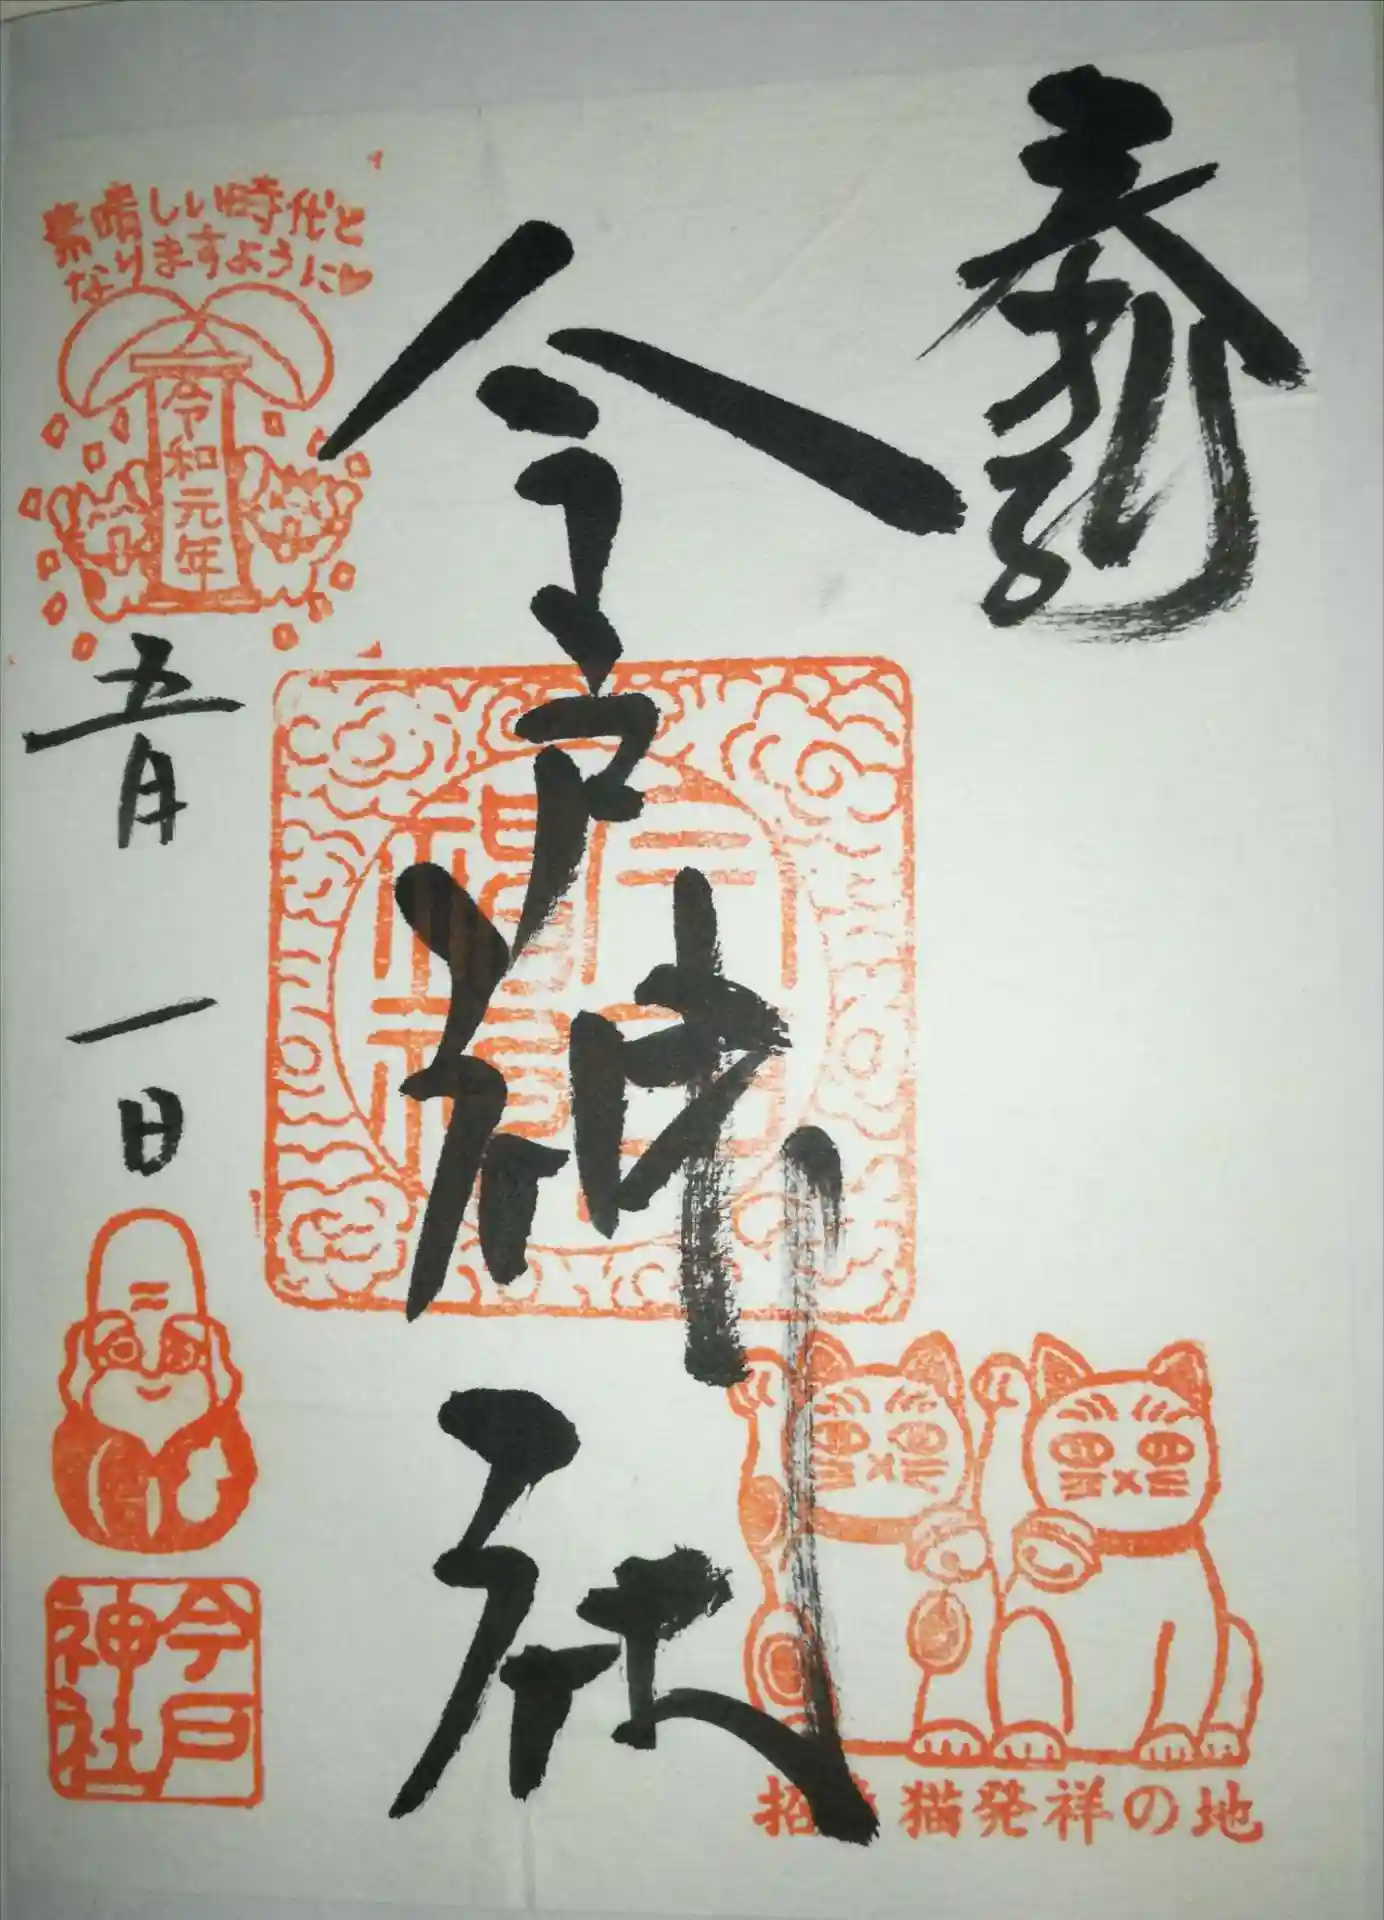 奉拝
今戸神社
素晴しい時代と
なりますように♥
令和元年
五月一日
今戸
神社
招き猫発祥の地